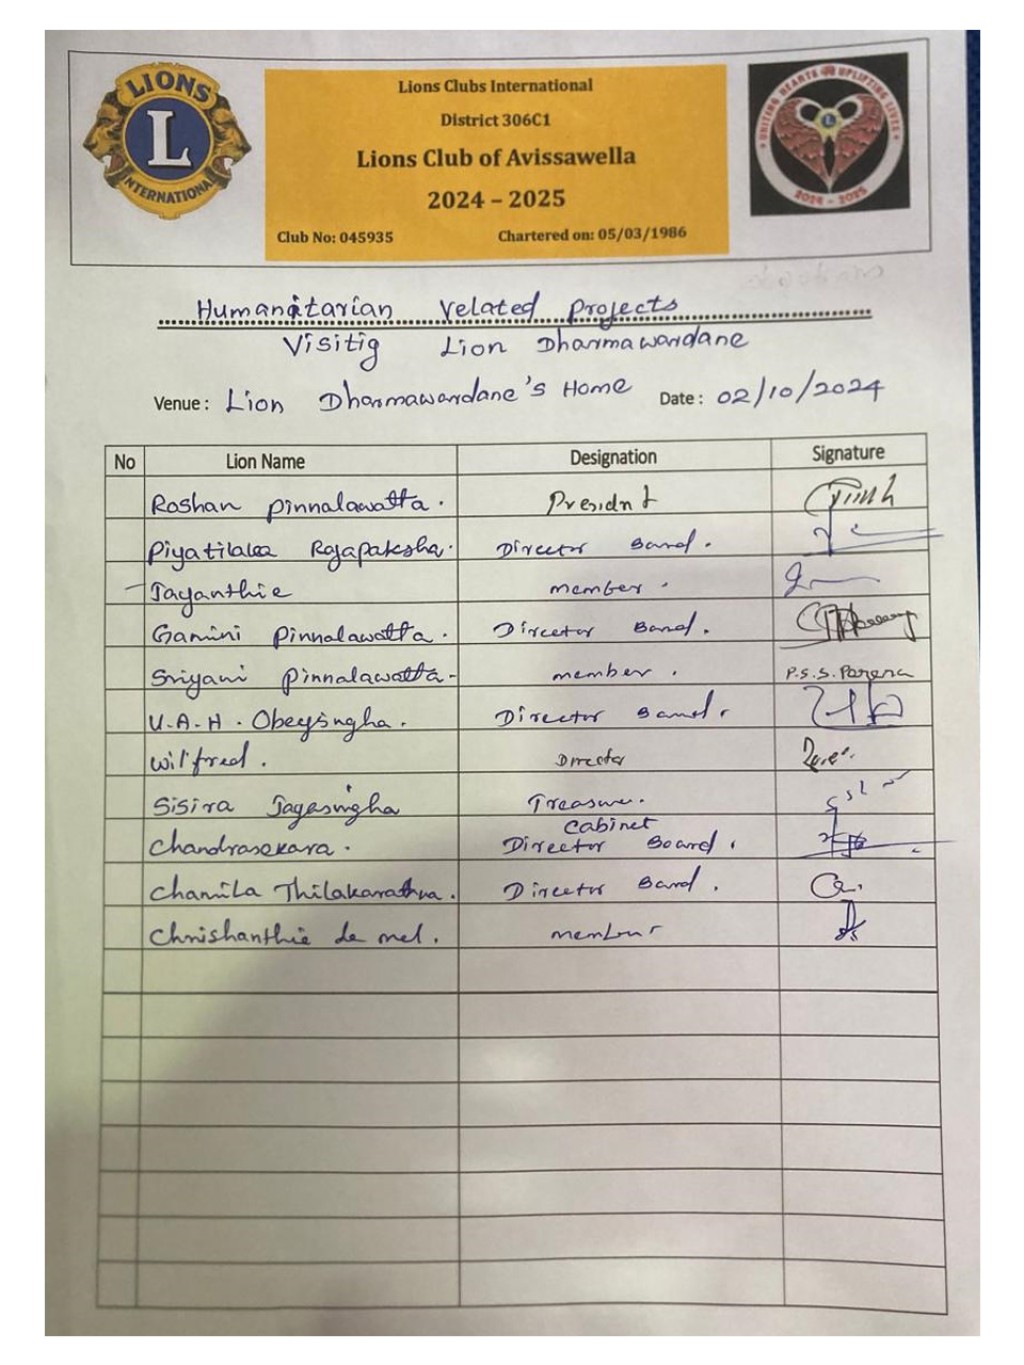 LIONS
L
INTERNATIONAL
Lions Clubs International
District 306C1
Lions Club of Avissawella
2024 – 2025
Club No: 045935 Chartered on: 05/03/1986
UNITING HEARTS UPLIFTING LIVES
L
2024 - 2025
Humanitarian related projects
Visitig Lion Dharmawardane
Venue : Lion Dharmawardane's Home Date : 02/10/2024
No Lion Name Designation Signature
Roshan Pinnalawatta. Presidnt
Piyatilaka Rajapaksha. Director Band.
Jayanthie member.
Gamini Pinnalawatta. Director Band.
Sriyani Pinnalawatta- member. P.S.S. Perera
U.A.H. Obeysngha. Director Band.
Wilfred. Director
Sisira Jayasingha Treasure.
Cabinet
Chandrasekara. Director Board.
Chamila Thilakarathna. Director Band.
Chrishanthie de mel. member